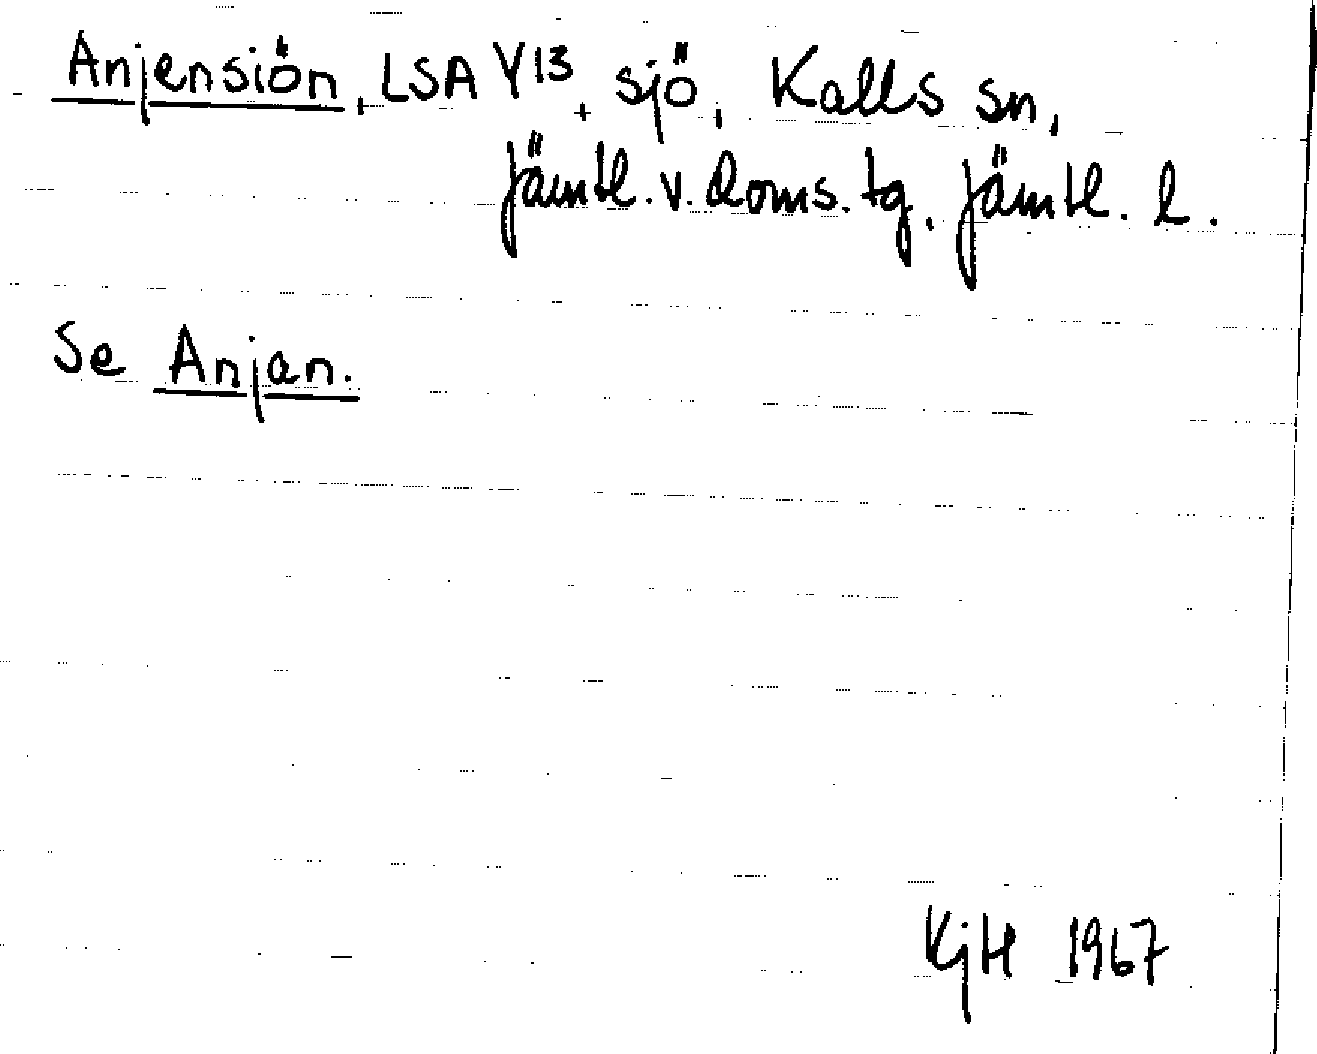 Anjensiön, LSA Y13, sjö, Kalls sn,
Jämtl. v. doms. tg, Jämtl. l.
Se Anjan.
KjH 1967